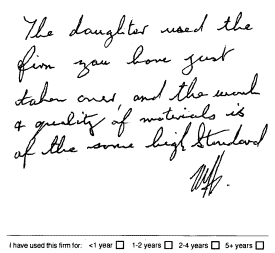 The daughter used the
firm you have just
taken over, and the work
& quality of materials is
of the same high Standard
I have used this firm for: <1 year 1-2 years 2-4 years 5+ years